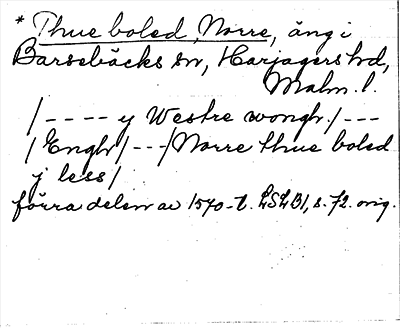 * Thue boled, Norre, äng i
Barsebäcks sn, Harjagers hd,
Malm. l.
/---- y Westre wongh/---
/Engh/---/Norre thue boled
j less/
förra delen av 1570-t. LSLB1, s. 72. orig.